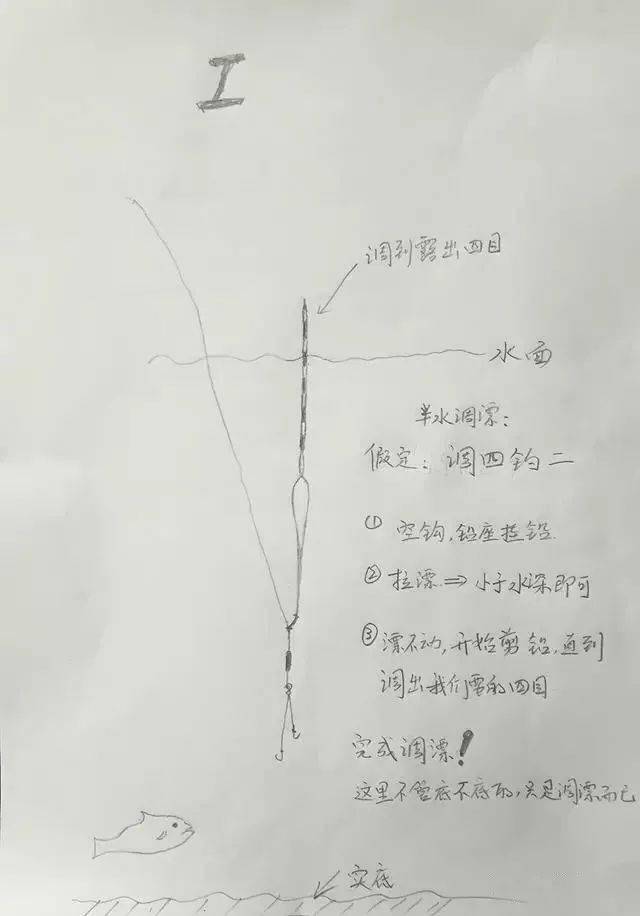 I
调到露出四目
水面
半水调漂：
假定：调四钓二
① 空钩，铅座挂铅
② 拉漂 ⇒ 小于水深即可
③ 漂不动，开始剪铅，直到
调出我们要的四目
完成调漂！
这里不管底不底的，只是调漂而已
实底